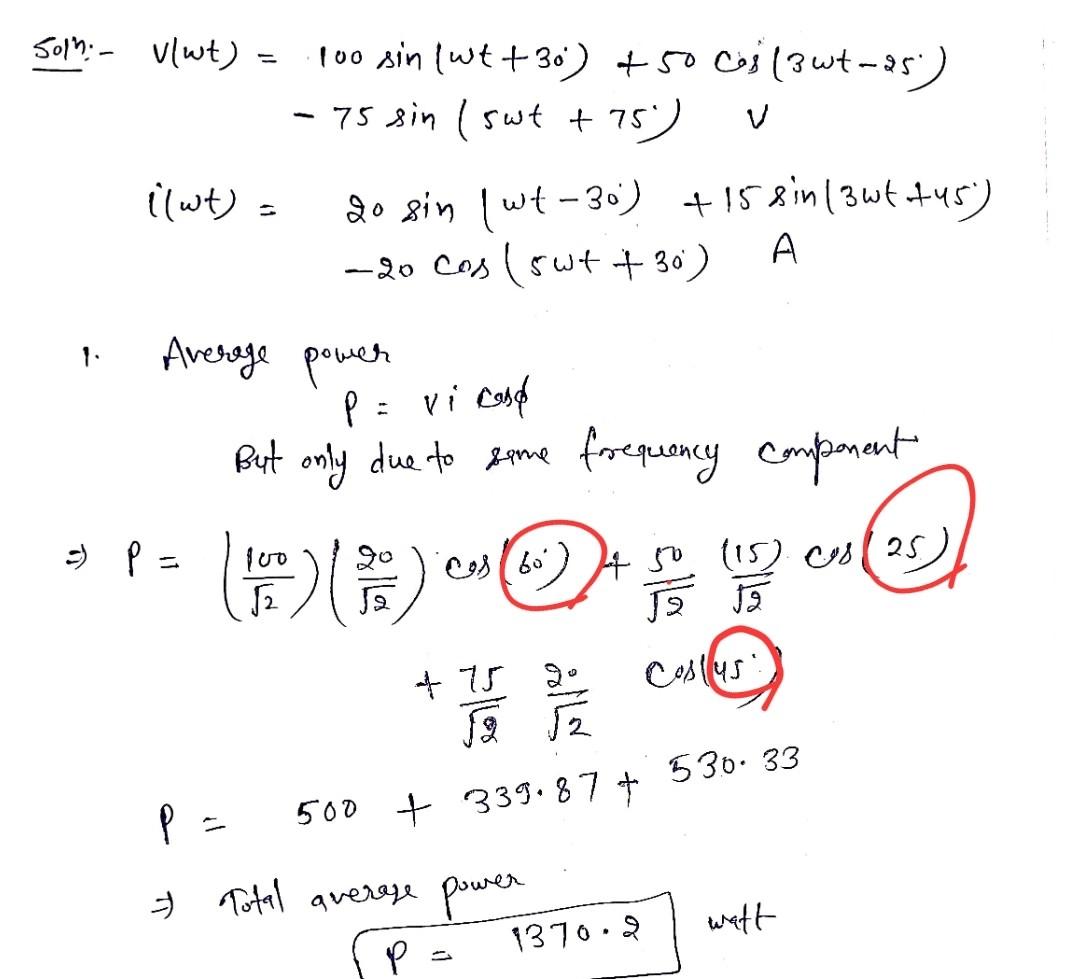 Soln:- V(wt) = 100 sin (wt + 30°) + 50 cos (3wt - 25°)
- 75 sin ( 5wt + 75°) V
i(wt) = 20 sin (wt - 30°) + 15 sin (3wt + 45°)
- 20 cos ( 5wt + 30°) A
1. Average power
P = vi cosϕ
But only due to same frequency component
⇒ P = (100/√2) (20/√2) cos (60°) + 50/√2 (15)/√2 cos (25)
+ 75/√2 20/√2 cos(45°)
P = 500 + 339.87 + 530.33
⇒ Total average power
P = 1370.2 watt